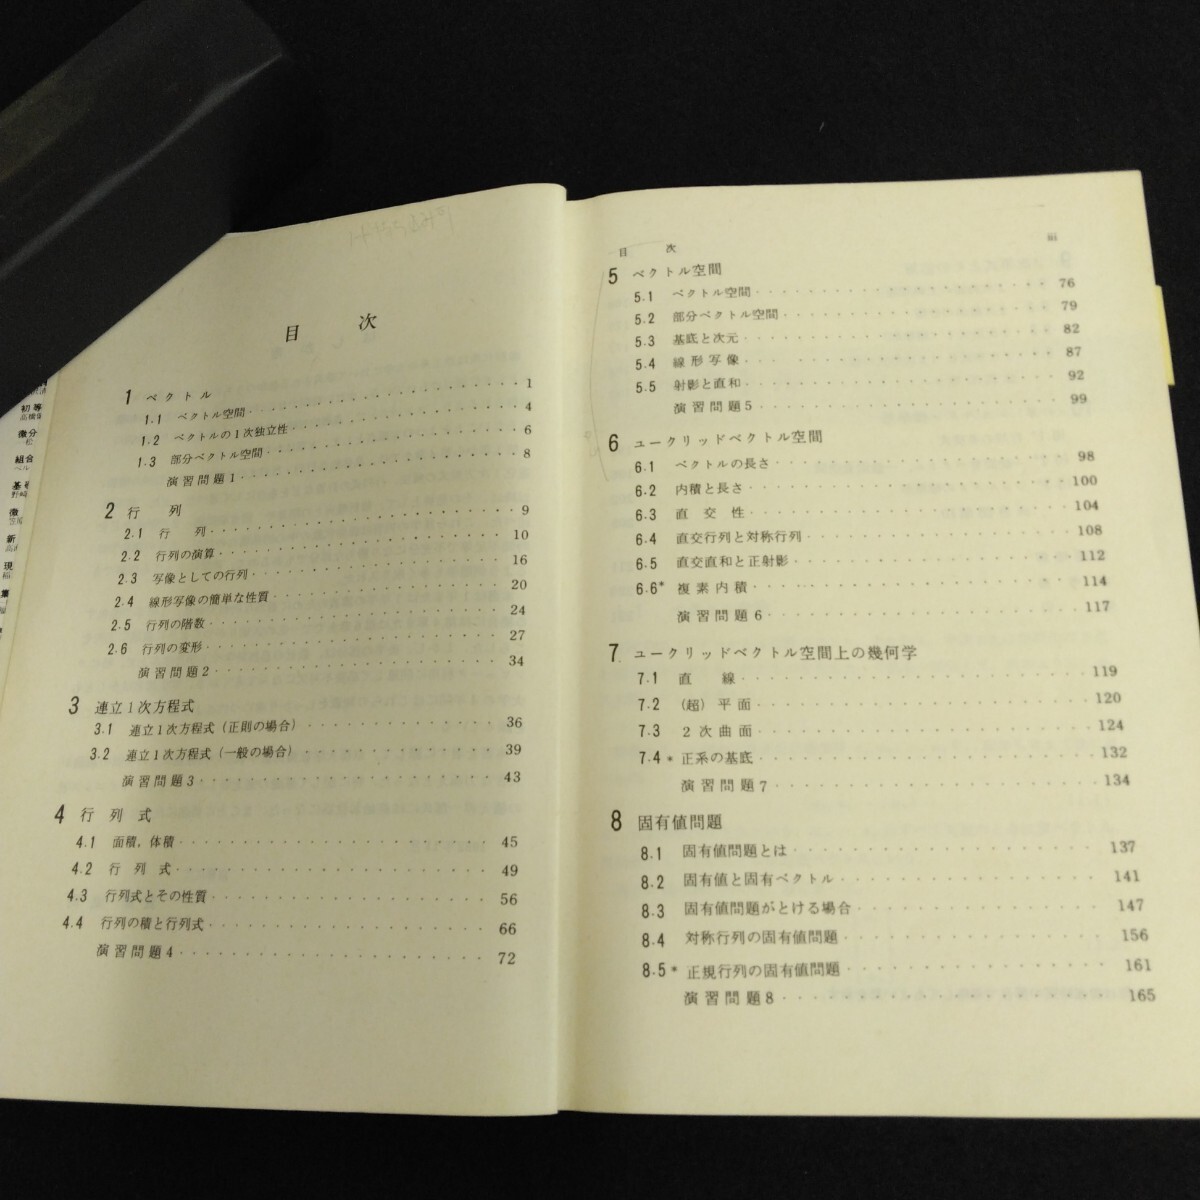 目 次
1 ベクトル
1.1 ベクトル空間 1
1.2 ベクトルの1次独立性 4
1.3 部分ベクトル空間 6
演習問題1 8
2 行 列
2.1 行 列 9
2.2 行列の演算 10
2.3 写像としての行列 16
2.4 線形写像の簡単な性質 20
2.5 行列の階数 24
2.6 行列の変形 27
演習問題2 34
3 連立1次方程式
3.1 連立1次方程式(正則の場合) 36
3.2 連立1次方程式(一般の場合) 39
演習問題3 43
4 行列式
4.1 面積,体積 45
4.2 行列式 49
4.3 行列式とその性質 56
4.4 行列の積と行列式 66
演習問題4 72
目 次 iii
5 ベクトル空間
5.1 ベクトル空間 76
5.2 部分ベクトル空間 79
5.3 基底と次元 82
5.4 線形写像 87
5.5 射影と直和 92
演習問題5 99
6 ユークリッドベクトル空間
6.1 ベクトルの長さ 98
6.2 内積と長さ 100
6.3 直交性 104
6.4 直交行列と対称行列 108
6.5 直交直和と正射影 112
6.6* 複素内積 114
演習問題6 117
7 ユークリッドベクトル空間上の幾何学
7.1 直 線 119
7.2 (超)平面 120
7.3 2次曲面 124
7.4* 正系の基底 132
演習問題7 134
8 固有値問題
8.1 固有値問題とは 137
8.2 固有値と固有ベクトル 141
8.3 固有値問題がとける場合 147
8.4 対称行列の固有値問題 156
8.5* 正規行列の固有値問題 161
演習問題8 165
初等
微分
組合